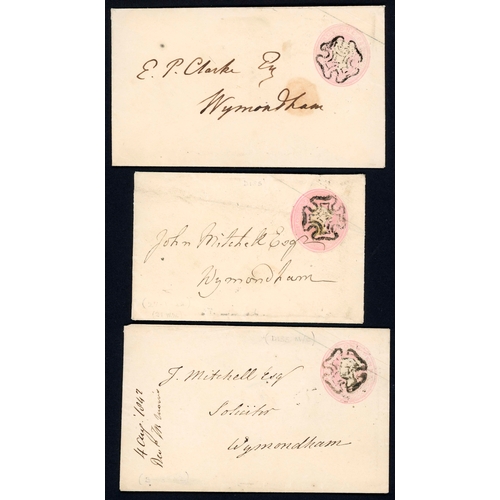 E. P. Clarke Esq
Wymondham
John Mitchell Esqr
Wymondham
J. Mitchell Esq
Solicitor
Wymondham
4 Aug 1842